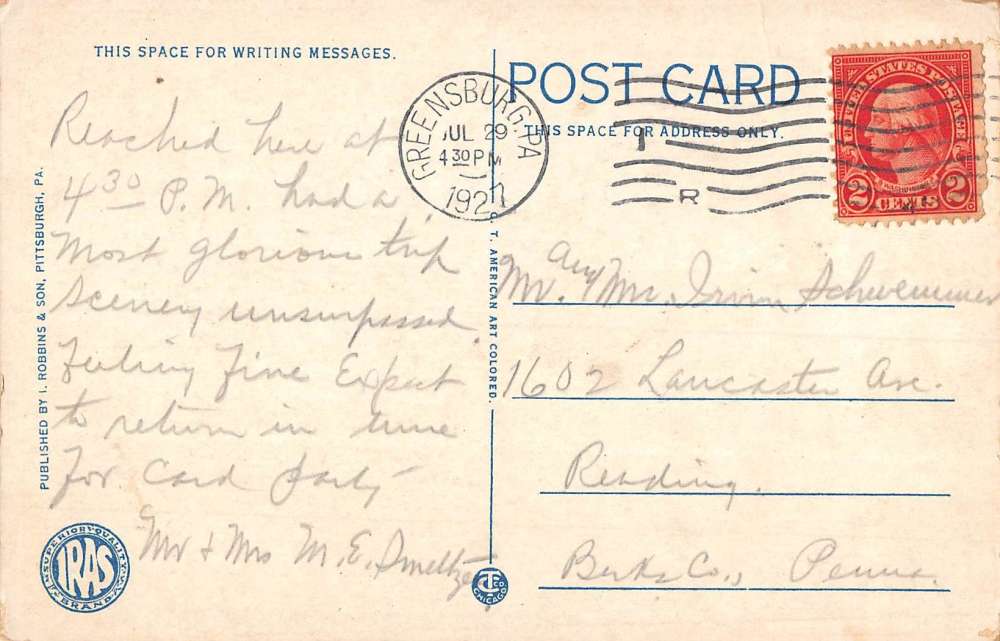 THIS SPACE FOR WRITING MESSAGES.
Reached here at
4 30 P.M. had a
Most glorious trip
Scenery unsurpassed
Feeling Fine Expect
to return in time
For Card party
Mr & Mrs M. E. Smeltzer
PUBLISHED BY I. ROBBINS & SON, PITTSBURGH, PA.
SUPERIOR QUALITY
IRAS
BRAND
C. T. AMERICAN ART COLORED.
CO.
CHICAGO
POST CARD
THIS SPACE FOR ADDRESS ONLY.
GREENSBURG, PA
JUL 29
4 30 PM
1927
R
UNITED STATES POSTAGE
WASHINGTON
2 CENTS 2
Mr. and Mrs. Irvin Schwemmer
1602 Lancaster Ave.
Reading.
Berks Co., Penna.